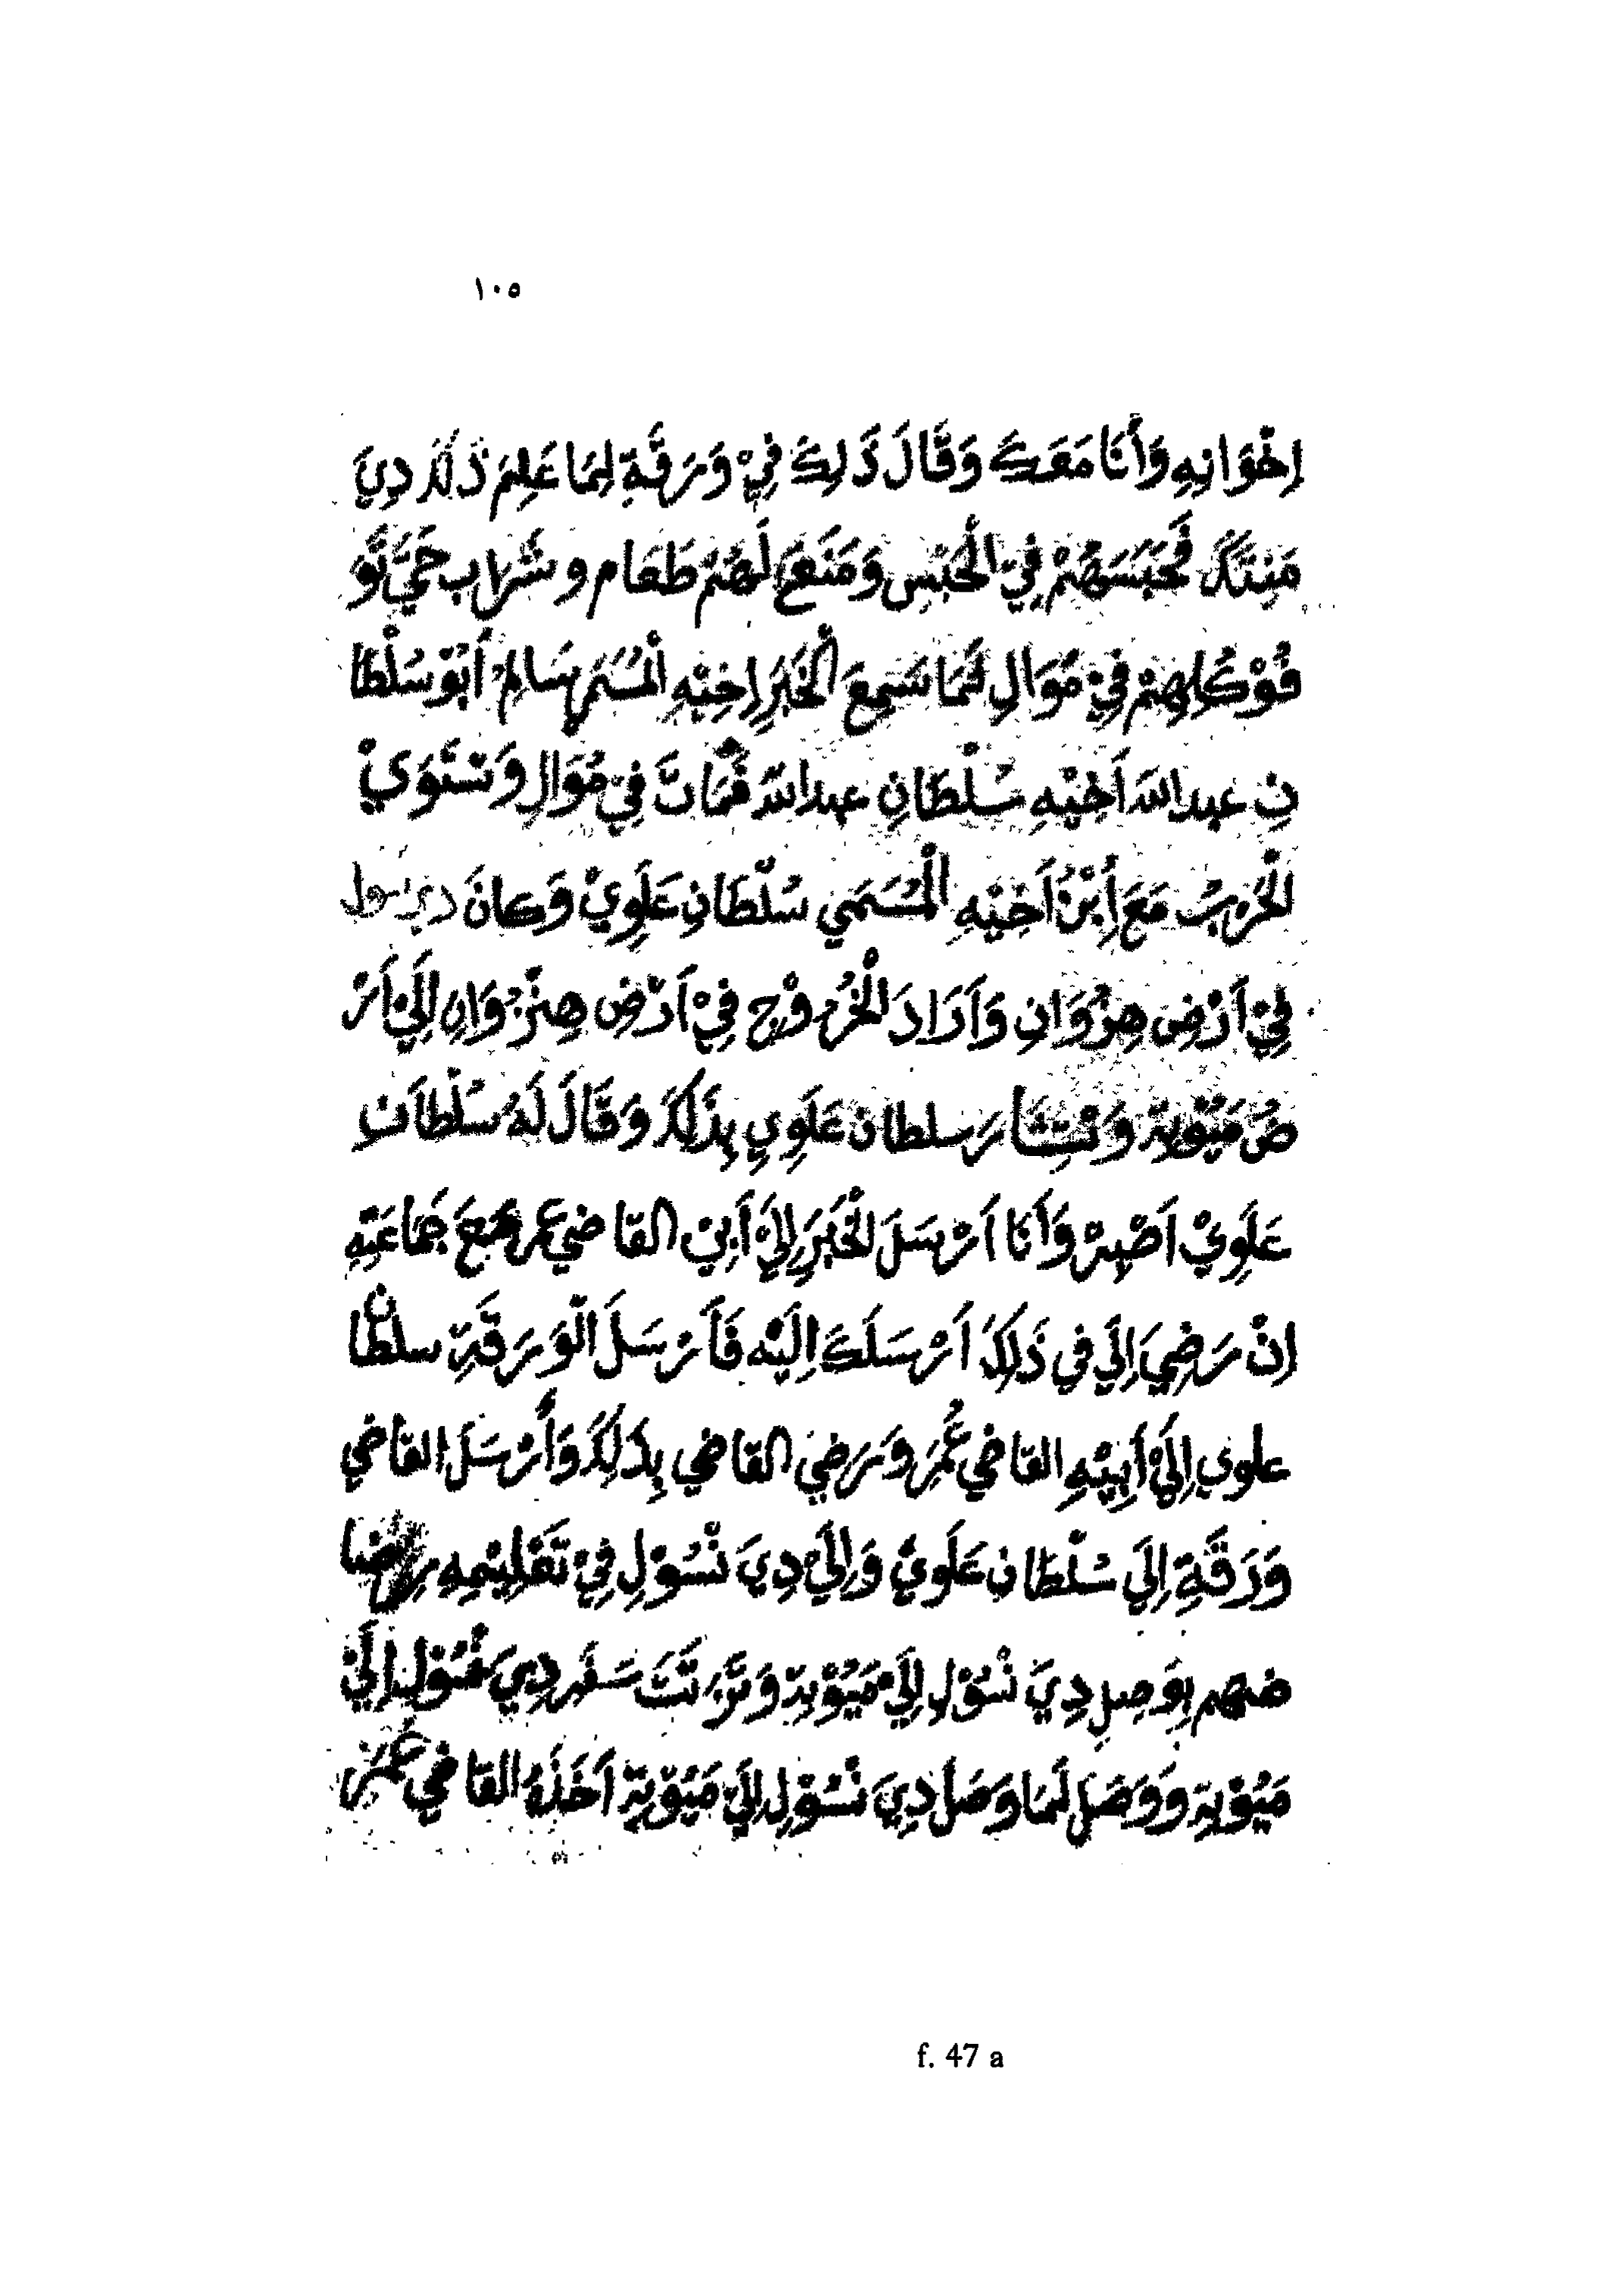 ١٠٥
إِخْوَانِهِ وَأَنَا مَعَكَ وَقَالَ ذَلِكَ فِيْ وَرَقَةِ لِمَا عَلِمَ ذَلِكَ دِيَ
مَنِتَكَ فَحَبَسَهُمْ فِيْ الْحَبْسِ وَمَنَعَ لَهُمْ طَعَام وشَرَاب حَتَّيَ تَوَ
فُوْ كُلِهِمْ فِيْ مُوَالِ لَمَا سَمِعَ الْخَبَرِ اِخِيْهِ الْمُسَمَى سَالِمْ أَبُوْ سُلْطَا
نِ عبد اللهَ اَخِيْهِ سُلْطَانِ عبد اللهَ فَمَاتَ فِيْ مُوَالِ وَسْتَوَيْ
لْحَرْبُ مَعَ أِبْنُ اَخِيْهِ الْمُسَمَي سُلْطَانِ عَلَوِيْ وَكَانَ دي نسول
فِيْ اَرْضِ هِنْزُوَانِ وَاَرَادَ الْخُرُوْجِ فِيْ اَرْضِ هِنْزُوَانِ اِلَيْ اَرْ
ضُ مَيُوْتِة وَسْتَشَارَ سلطان عَلَوِيِ بِذَلِكَ وَقَالَ لَهُ سُلْطَانِ
عَلَوِيْ اَصْبِرْ وَأَنَا اَرْسَلَ لْخَبَرَ اِلَيْ اَبِيْ القاضي عمر مَعَ جَمَاعَتِهِ
اِنْ رَضِيَ اِلَي في ذَلِكَ اَرْسَلَكَ اِلَيْه فَاَرْسَلَ الْوَرَقَةِ سلطا
علوي اِلَيْ اَبِيْهِ القاضي عُمَرَ وَرَضِيَ القاضي بِذَلِكَ وَأَرْسَلَ القاضي
وَرَقَةِ اِلَي سُلْطَانِ عَلَوِيْ وَاِلَيْ دِيَ نْسُوْلِ فِيْ تَقْلِيْمِهِ
ضهم بِوَصِلِ دِيَ نْسُوْلِ اِلَيْ مَيُوْتِة وَتَرَتَّبَ سَفَر دِيَ نْسُوْلِ اِلَيْ
مَيُوْتِة وَوَصَلَ لَمَا وَصَلَ دِيَ نْسُوْلِ اِلَيْ مَيُوْتِة اَخَذَهُ القاضي عُمَرْ
f. 47 a